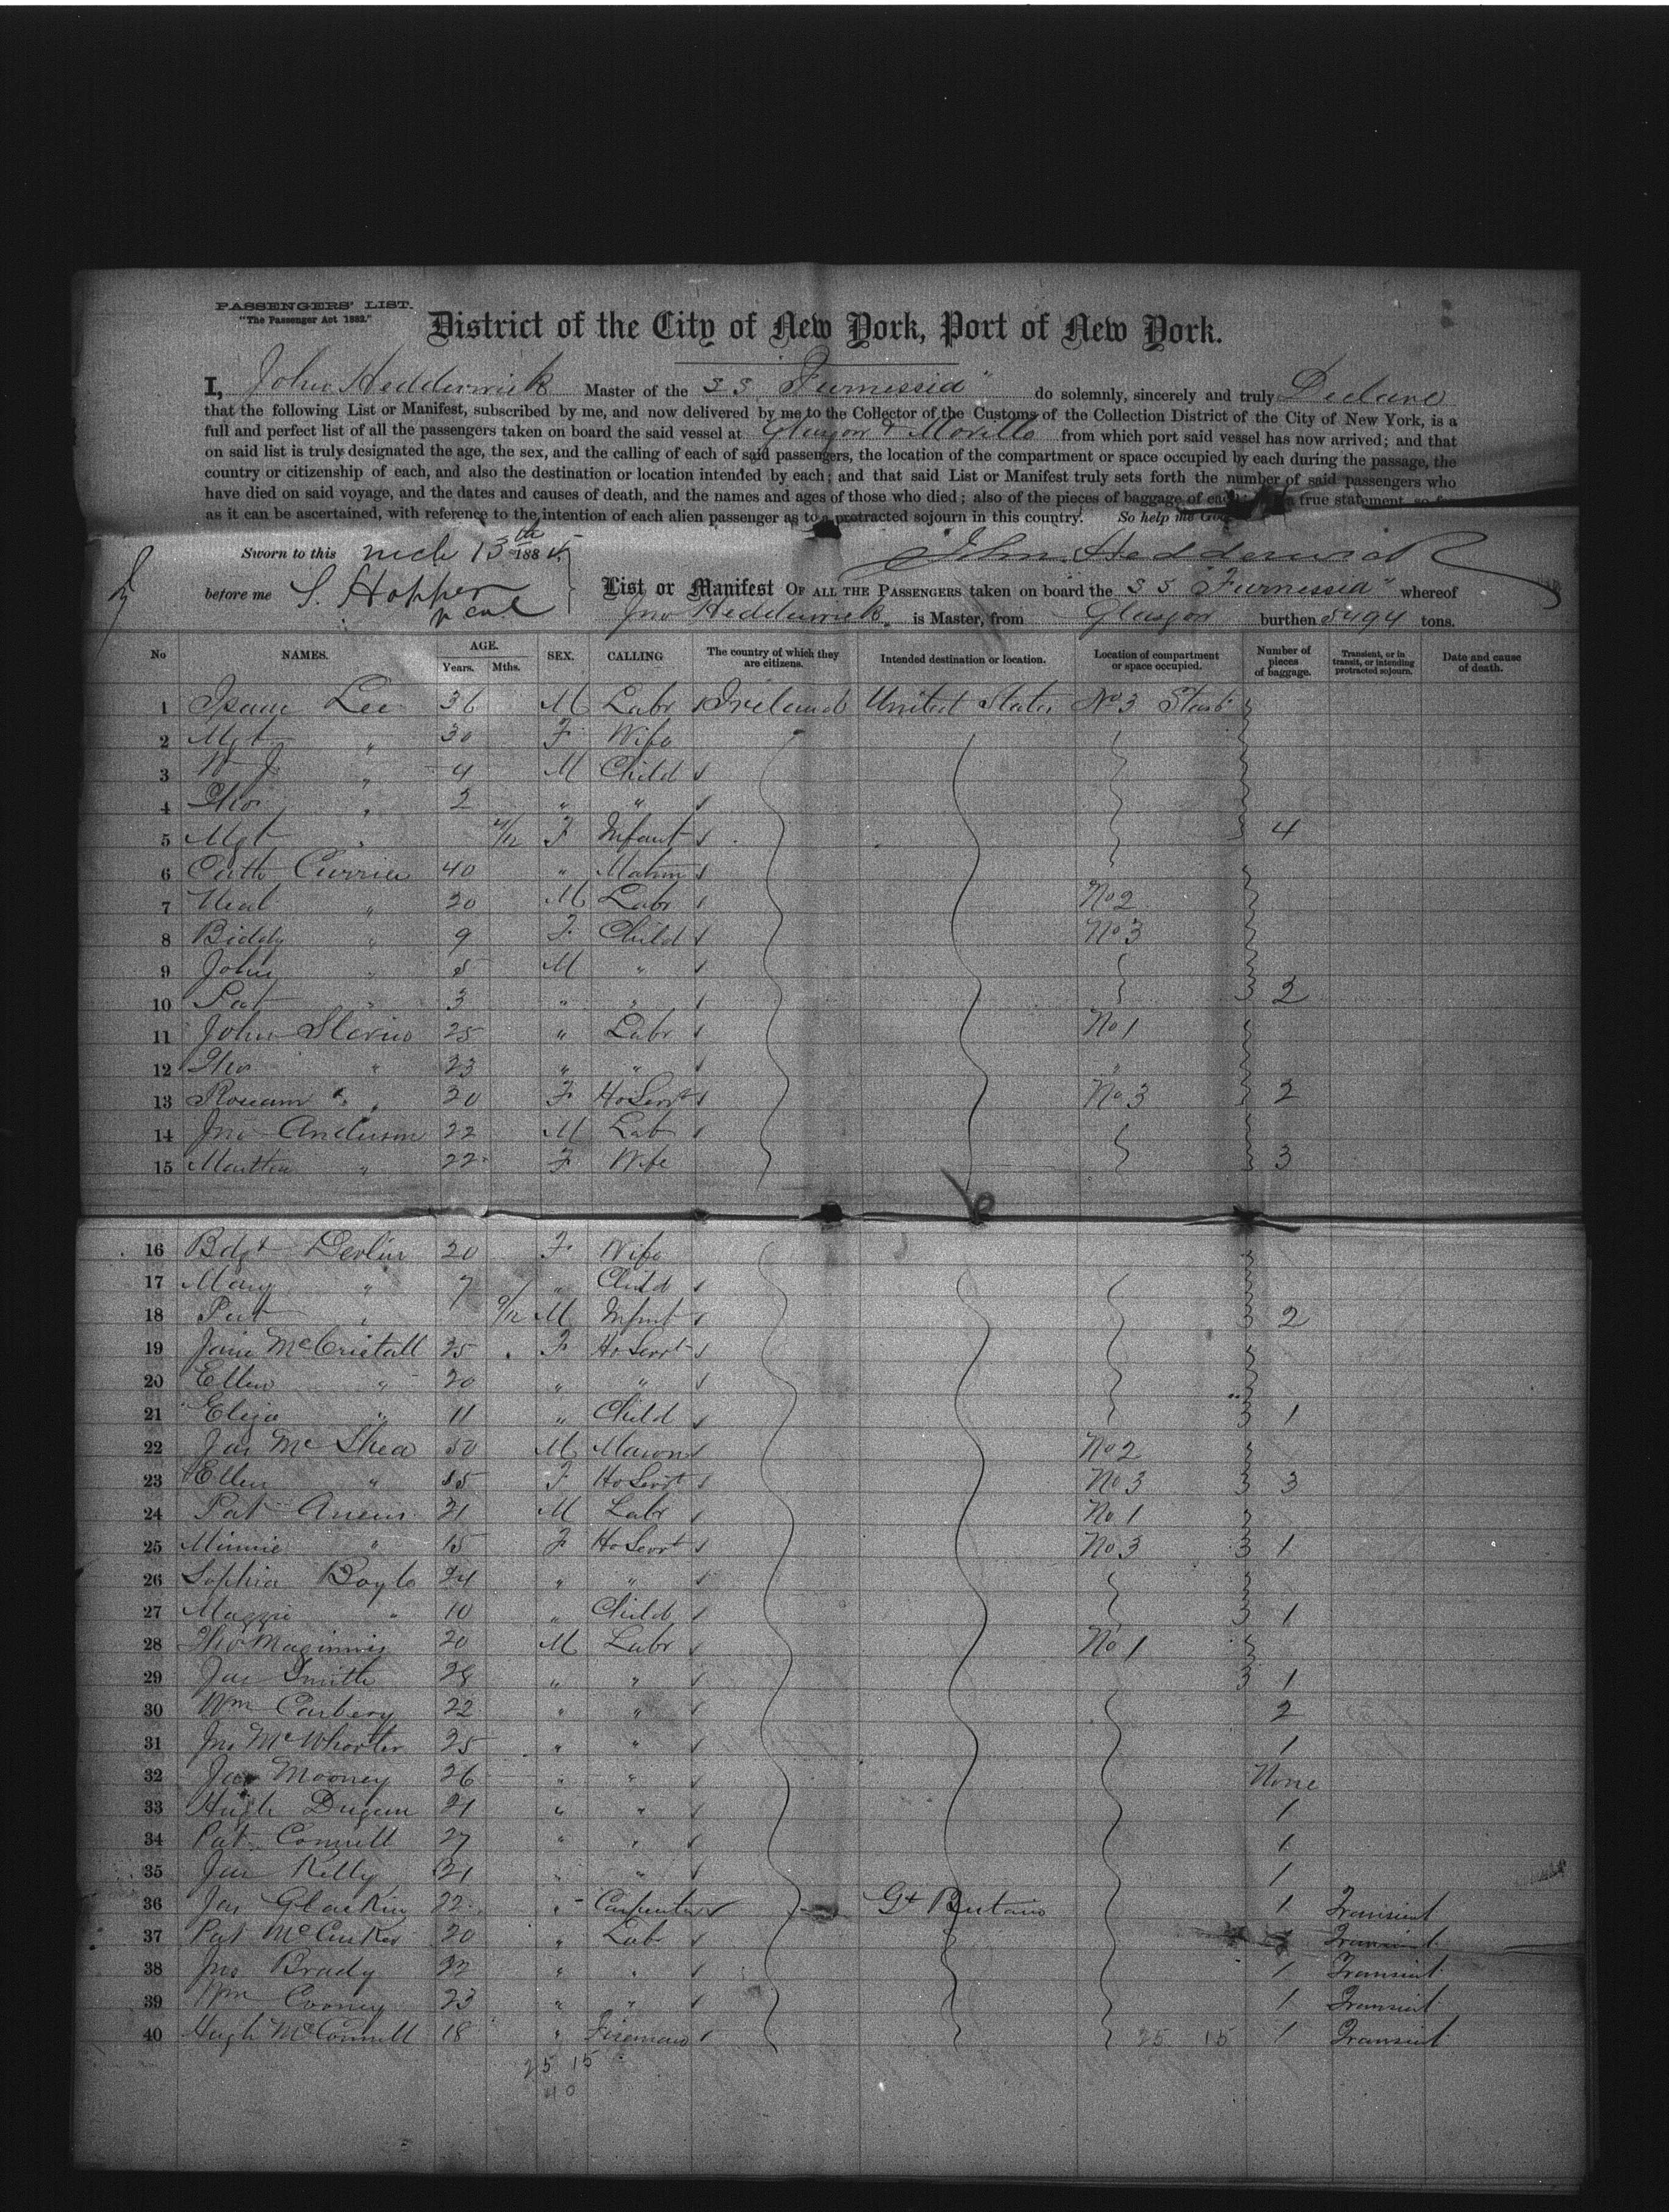 PASSENGERS' LIST.
"The Passenger Act 1882."
District of the City of New York, Port of New York.
I, John Hedderwick Master of the S S "Furnessia" do solemnly, sincerely and truly Declare
that the following List or Manifest, subscribed by me, and now delivered by me to the Collector of the Customs of the Collection District of the City of New York, is a
full and perfect list of all the passengers taken on board the said vessel at Glasgow & Moville from which port said vessel has now arrived; and that
on said list is truly designated the age, the sex, and the calling of each of said passengers, the location of the compartment or space occupied by each during the passage, the
country or citizenship of each, and also the destination or location intended by each; and that said List or Manifest truly sets forth the number of said passengers who
have died on said voyage, and the dates and causes of death, and the names and ages of those who died; also of the pieces of baggage of each; true statement, so far
as it can be ascertained, with reference to the intention of each alien passenger as to a protracted sojourn in this country. So help me God
Sworn to this mch 13th 188 John Hedderwick
before me S. Hopper
List or Manifest OF ALL THE PASSENGERS taken on board the S S "Furnessia" whereof
Jno Hedderwick is Master, from Glasgow burthen 5494 tons.
No NAMES. AGE. Years. Mths. SEX. CALLING The country of which they are citizens. Intended destination or location. Location of compartment or space occupied. Number of pieces of baggage. Transient, or in transit, or intending protracted sojourn. Date and cause of death.
1 Lee 36 M Labr Ireland United States No 3 Starb
2 Mgt " 30 F Wife
3 W J " 4 M Child
4 Tho " 2 " "
5 Mgt " /12 F Infant 4
6 Cath Currie 40 " Matrn
7 Neal " 20 M Labr No 2
8 Biddy " 9 F Child No 3
9 John " 5 M "
10 Pat " 3 " " 2
11 John Slevin 25 " Labr No 1
12 Tho " 23 " " "
13 Roseann " 20 F Ho Servt No 3 2
14 Jno Anderson 22 M Lab
15 Martha " 22 F Wife 3
16 Bdgt Devlin 20 F Wife
17 Mary " 7 " Child
18 Pat " 9/12 M Infant 2
19 Jane McCristall 25 F Ho Servt
20 Ellen " 20 " "
21 Eliza " 11 " Child 1
22 Jas McShea 50 M Mason No 2
23 Ellen " F Ho Servt No 3 3
24 Pat 21 M Labr No 1
25 Minnie " 15 F Ho Servt No 3 1
26 Sophia Boyle 24 " "
27 Maggie " 10 " Child 1
28 Tho Maginnis 20 M Labr No 1
29 Jas Smith 28 " " 1
30 Wm Carbery 22 " " 2
31 Jno McWhorter 25 " " 1
32 Jas Mooney 26 " " None
33 Hugh Dugan 21 " " 1
34 Pat Connell 27 " " 1
35 Jas Kelly 21 " " 1
36 Jas Glackin 22 " Carpenter Gt Britain 1 Transient
37 Pat McCusker 20 " Lab Transient
38 Jno Brady 22 " " 1 Transient
39 Wm Cooney 23 " " 1 Transient
40 Hugh McConnell 18 " Fireman 25 15 1 Transient
25 15
40